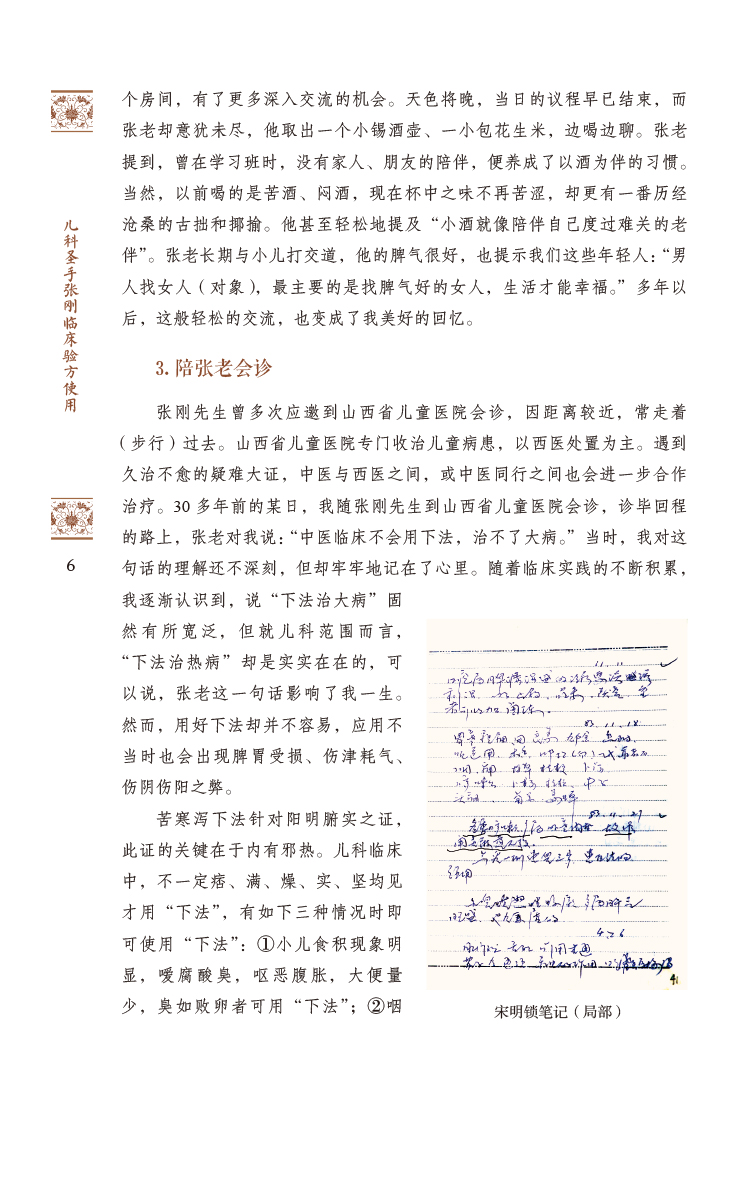 个房间，有了更多深入交流的机会。天色将晚，当日的议程早已结束，而
张老却意犹未尽，他取出一个小锡酒壶、一小包花生米，边喝边聊。张老
提到，曾在学习班时，没有家人、朋友的陪伴，便养成了以酒为伴的习惯。
当然，以前喝的是苦酒、闷酒，现在杯中之味不再苦涩，却更有一番历经
沧桑的古拙和揶揄。他甚至轻松地提及“小酒就像陪伴自己度过难关的老
伴”。张老长期与小儿打交道，他的脾气很好，也提示我们这些年轻人：“男
人找女人（对象），最主要的是找脾气好的女人，生活才能幸福。”多年以
后，这般轻松的交流，也变成了我美好的回忆。
3. 陪张老会诊
张刚先生曾多次应邀到山西省儿童医院会诊，因距离较近，常走着
（步行）过去。山西省儿童医院专门收治儿童病患，以西医处置为主。遇到
久治不愈的疑难大证，中医与西医之间，或中医同行之间也会进一步合作
治疗。30 多年前的某日，我随张刚先生到山西省儿童医院会诊，诊毕回程
的路上，张老对我说：“中医临床不会用下法，治不了大病。”当时，我对这
句话的理解还不深刻，但却牢牢地记在了心里。随着临床实践的不断积累，
我逐渐认识到，说“下法治大病”固
然有所宽泛，但就儿科范围而言，
“下法治热病”却是实实在在的，可
以说，张老这一句话影响了我一生。
然而，用好下法却并不容易，应用不
当时也会出现脾胃受损、伤津耗气、
伤阴伤阳之弊。
苦寒泻下法针对阳明腑实之证，
此证的关键在于内有邪热。儿科临床
中，不一定痞、满、燥、实、坚均见
才用“下法”，有如下三种情况时即
可使用“下法”：①小儿食积现象明
显，嗳腐酸臭，呕恶腹胀，大便量
少，臭如败卵者可用“下法”；②咽
宋明锁笔记（局部）
儿科圣手张刚临床验方使用
6